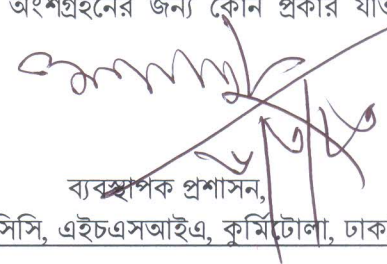 অংশগ্রহনের জন্য কোন প্রকার
ব্যবস্থাপক প্রশাসন,
সিসি, এইচএসআইএ, কুর্মিটোলা, ঢাক